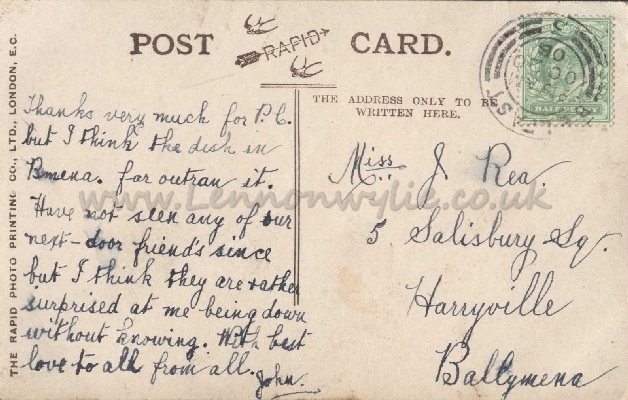 POST CARD.
RAPID
THE ADDRESS ONLY TO BE
WRITTEN HERE.
THE RAPID PHOTO PRINTING CO., LTD., LONDON, E.C.
Thanks very much for P.C.
but I think the dish in
Bmena. far outran it.
Have not seen any of our
next-door friend's since
but I think they are rather
surprised at me being down
without knowing. With best
love to all from all.
John.
Miss J. Rea.
5, Salisbury Sq.
Harryville
Ballymena
HALFPENNY
www.Lennonwylie.co.uk